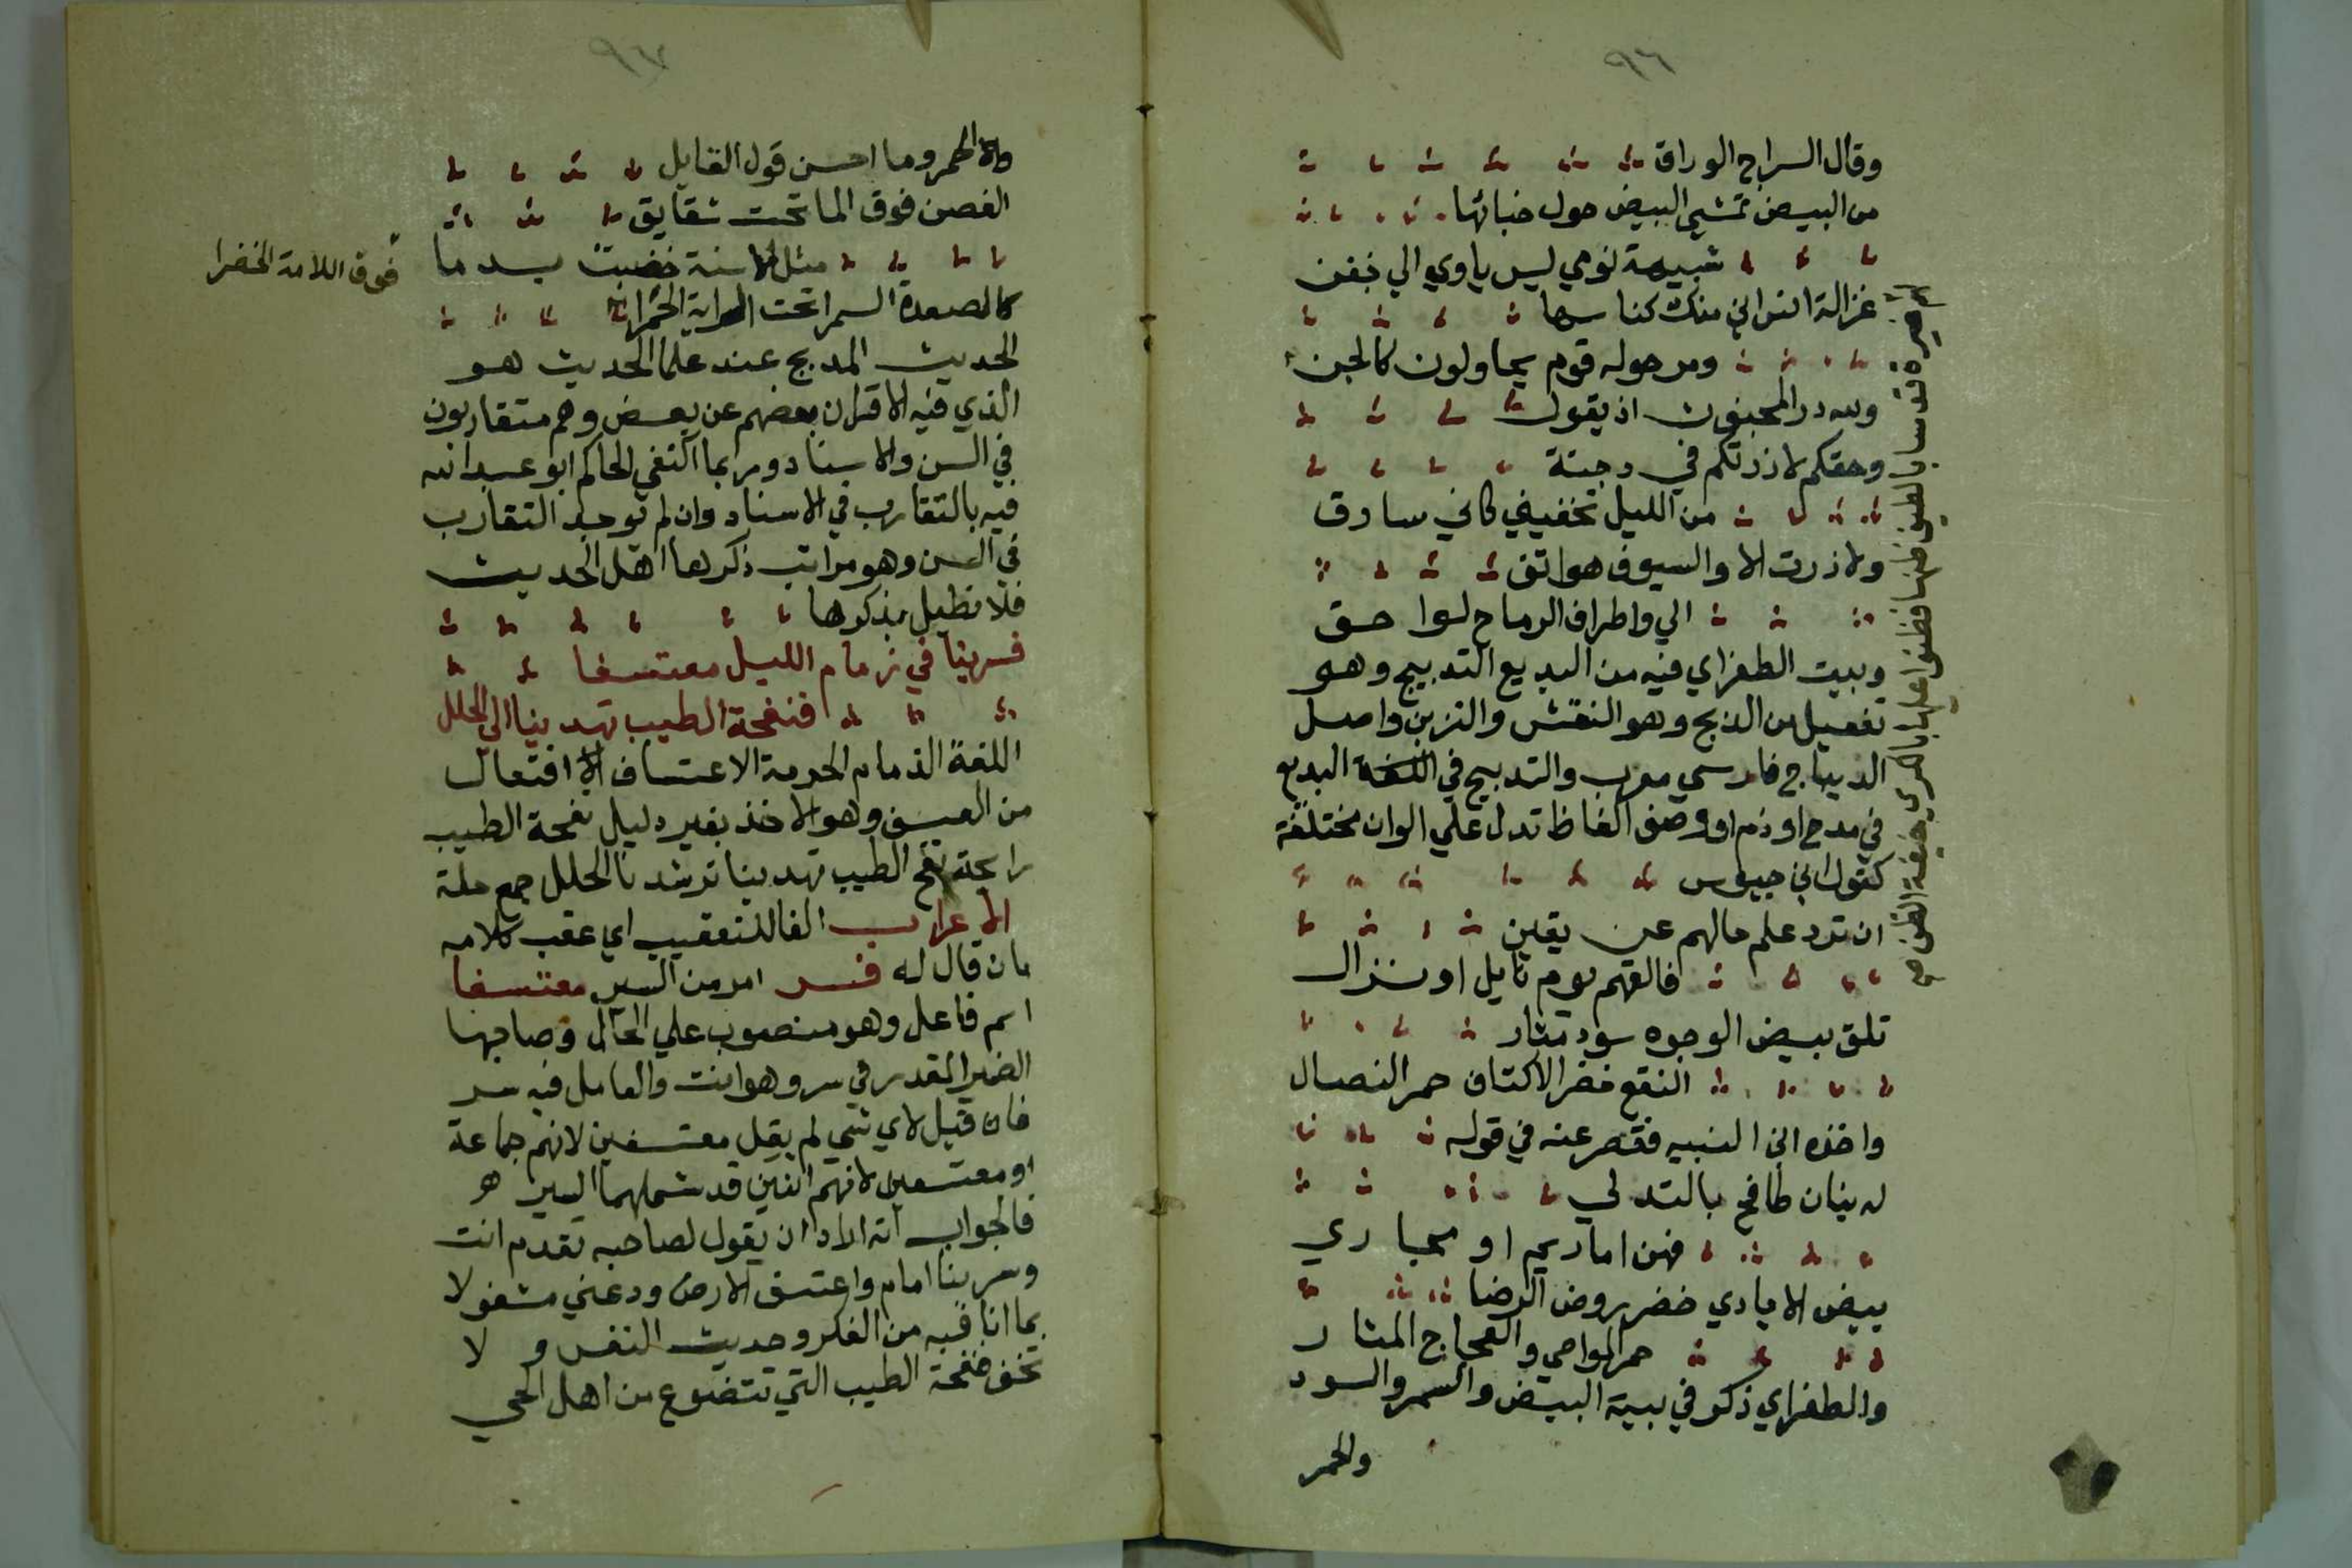 ٩٦
وقال السراج الوراق
من البيض تمشي البيض حول خبائها
شبيهة نومي ليس ياوي الي جفن
غزالة انس اني منك كناسها
ومن حوله قوم يحاولون كالجن
ولله در المجنون اذ يقول
وحقكم لا زرتكم في دجنة
من الليل تخفيني كاني سارق
ولا زرت الا والسيوف هواتف
الي واطراف الرماح لواحق
وبيت الطغراي فيه من البديع التدبيج وهو
تفعيل من الدبج وهو النقش والتزين واصل
الديباج فارسي معرب والتدبيج في اللغة البديع
في مدح او ذم او وصف الفاظ تدل علي الوان مختلفة
كقول ابن حيوس
ان ترد علم حالهم عن يقين
فالقهم يوم نايل او نزال
تلق بيض الوجوه سود مثار
النقع خضر الاكتاف حمر النصال
واخذه ابن النبيه فقصر عنه في قوله
له بنان طافح بالندي
فهن اما ديم او بحاري
بيض الايادي خضر روض الرضا
حمر المواضي والعجاج المثار
والطغراي ذكر في بيته البيض والسمر والسود
والحمر
٩٧
والحمر وما احسن قول القايل
الغصن فوق الما تحت شقايق
مثل الاسنة خضبت بدما
كالصعدة السمرا تحت الراية الحمرا
فوق اللامة الخضرا
الحديث المدبج عند علما الحديث هو
الذي فيه الاقران بعضهم عن بعض وهم متقاربون
في السن والاسناد وربما اكتفي الحاكم ابو عبد الله
فيه بالتقارب في الاسناد وان لم توجد التقارب
في السن وهو مراتب ذكرها اهل الحديث
فلا نطيل بذكرها
فسر بنا في زمام الليل معتسفا
فنفحة الطيب تهدينا الي الحلل
اللغة الذمام الحرمة الاعتساف الافتعال
من العسف وهو الاخذ بغير دليل نفحة الطيب
رايحة نفح الطيب تهدينا ترشدنا الحلل جمع حلة
الاعراب الفا للتعقيب اي عقب كلامه
بان قال له فسر امر من السير معتسفا
اسم فاعل وهو منصوب علي الحال وصاحبها
الضمير المقدر في سر وهو انت والعامل فيه سر
فان قيل لاي شي لم يقل معتسفين لانهم جماعة
او معتسفين لانهم اثنين قد شملهما السير
فالجواب انه اراد ان يقول لصاحبه تقدم انت
وسر بنا امام واعتسف الارض ودعني مشغولا
بما انا فيه من الفكر وحديث النفس ولا
تخف فنفحة الطيب التي تتضوع من اهل الحي